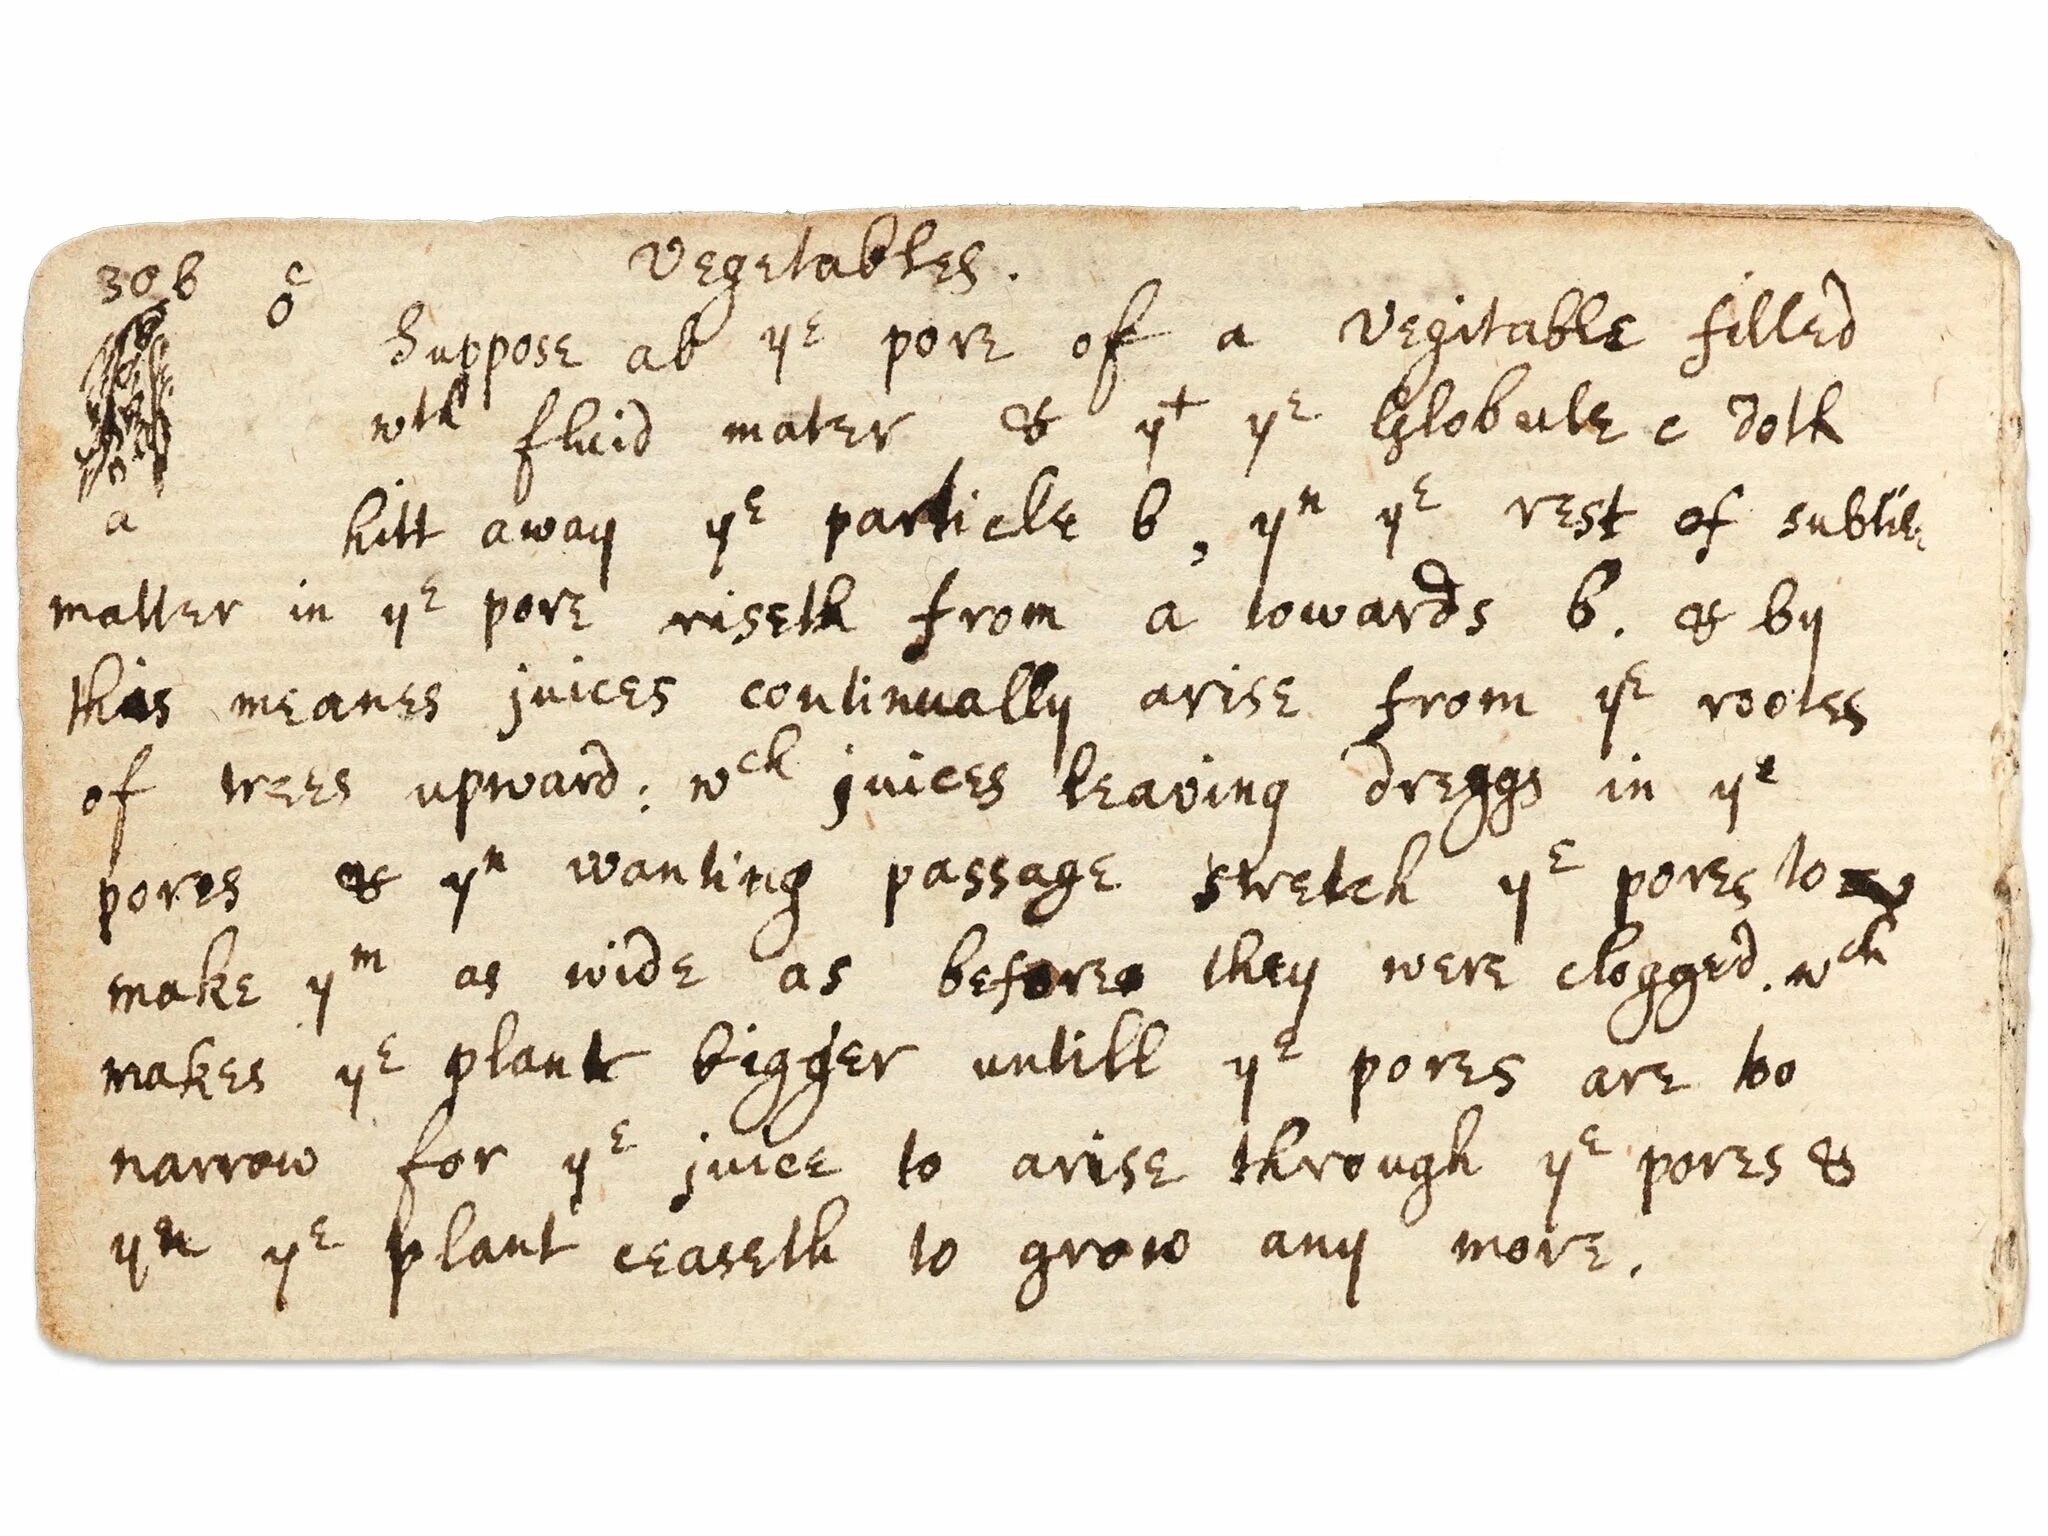 30 b c Vegetables.
o Suppose ab yᵉ pore of a Vegitable filled
wth fluid mater & y+ yᵉ Globule c doth
a hitt away yᵉ particle b, yⁿ yᵉ rest of subtile
matter in yᵉ pore riseth from a towards b. & by
this meanes juices continually arise from yᵉ rootes
of trees upward: wᶜʰ juices leaving dreggs in yᵉ
pores & yⁿ wanting passage stretch yᵉ pores to
make yᵐ as wide as before they were clogged. wᶜʰ
makes yᵉ plant bigger untill yᵉ pores are too
narrow for yᵉ juice to arise through yᵉ pores &
yⁿ yᵉ plant ceaseth to grow any more.